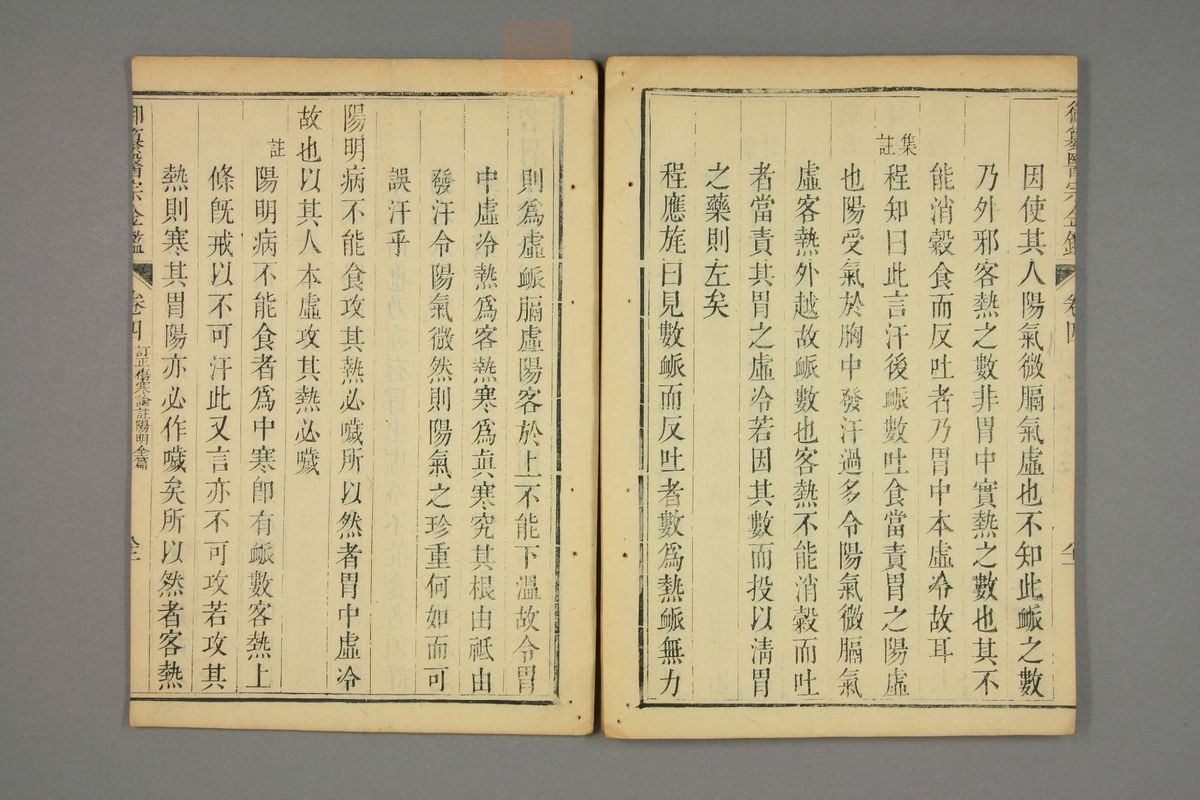 御纂醫宗金鑑 卷四
因使其人陽氣微膈氣虛也不知此衇之數
乃外邪客熱之數非胃中實熱之數也其不
能消穀食而反吐者乃胃中本虛冷故耳
集註
程知曰此言汗後衇數吐食當責胃之陽虛
也陽受氣於胸中發汗過多令陽氣微膈氣
虛客熱外越故衇數也客熱不能消穀而吐
者當責其胃之虛冷若因其數而投以清胃
之藥則左矣
程應旄曰見數衇而反吐者數爲熱衇無力
則爲虛衇膈虛陽客於上不能下溫故令胃
中虛冷熱爲客熱寒爲眞寒究其根由祗由
發汗令陽氣微然則陽氣之珍重何如而可
誤汗乎
陽明病不能食攻其熱必噦所以然者胃中虛冷
故也以其人本虛攻其熱必噦
註
陽明病不能食者爲中寒卽有衇數客熱上
條旣戒以不可汗此又言亦不可攻若攻其
熱則寒其胃陽亦必作噦矣所以然者客熱
御纂醫宗金鑑 卷四 訂正傷寒論註陽明全篇